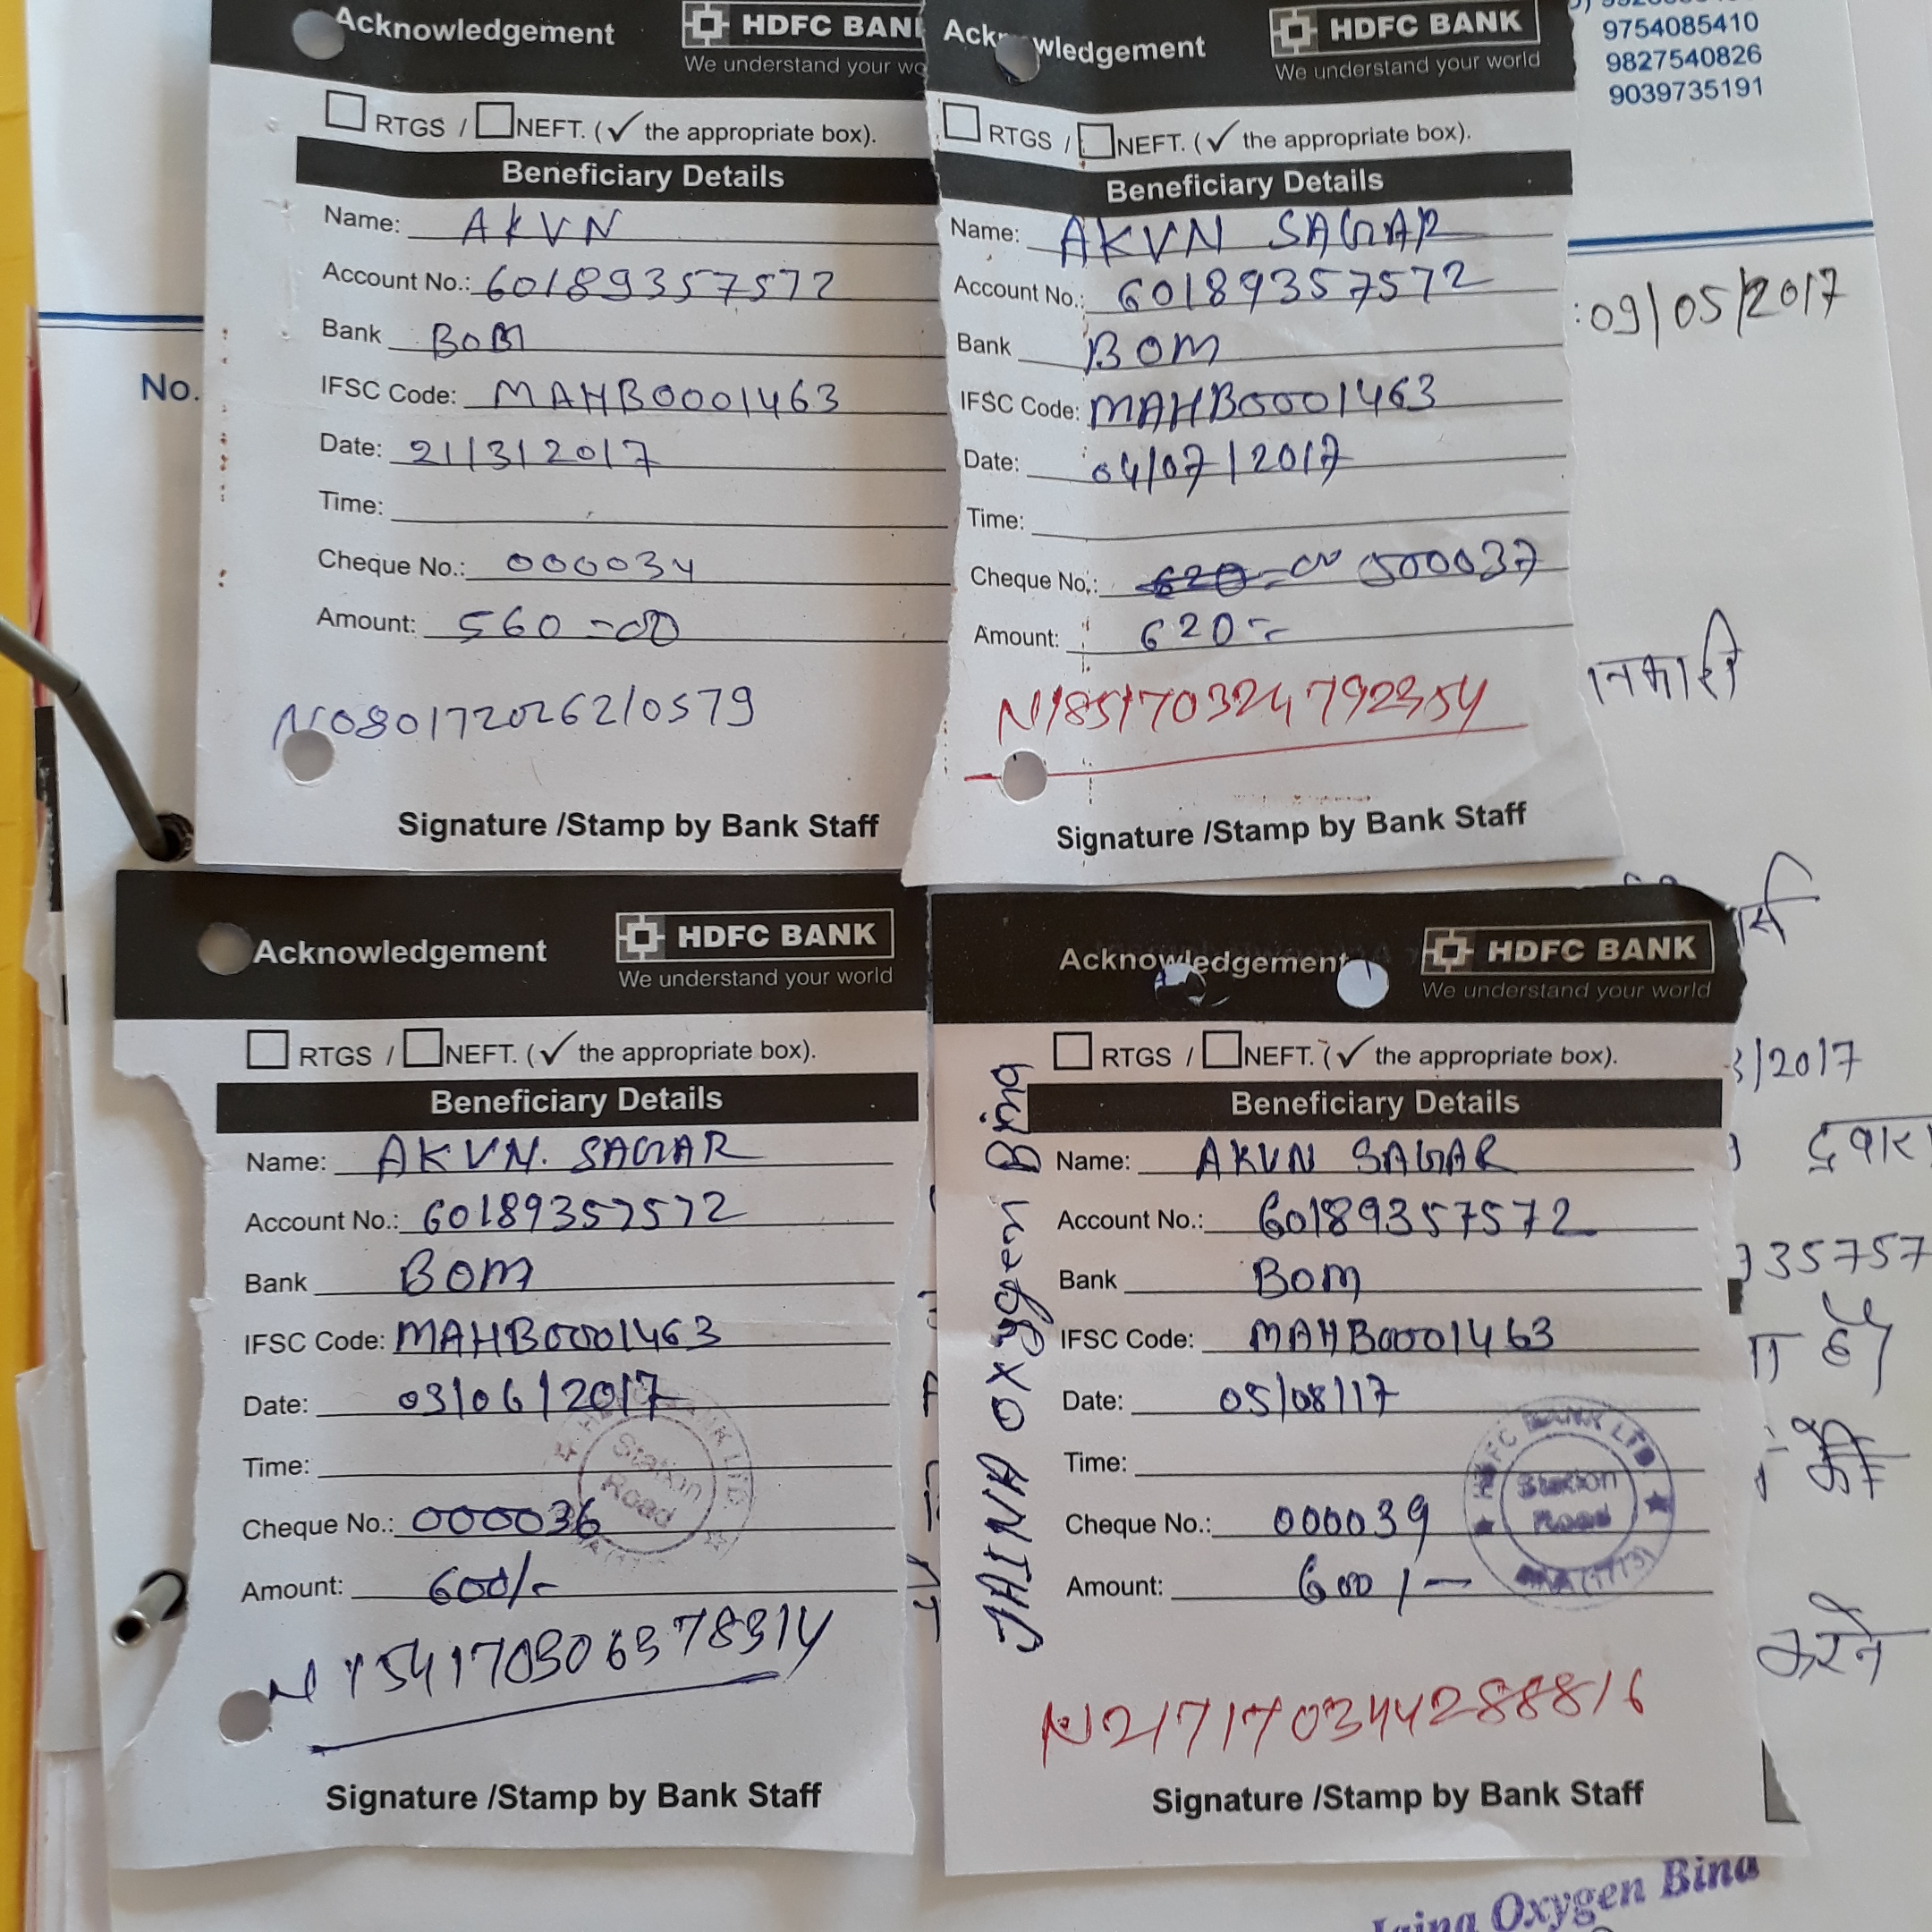 Acknowledgement
HDFC BANK
We understand your
RTGS / NEFT. (✓ the appropriate box).
Beneficiary Details
Name: AKVN
Account No.: 60189357572
Bank BOM
IFSC Code: MAHB0001463
Date: 21/3/2017
Time:
Cheque No.: 000034
Amount: 560=00
N080172026210579
Signature /Stamp by Bank Staff
Acknowledgement
HDFC BANK
We understand your world
RTGS / NEFT. (✓ the appropriate box).
Beneficiary Details
Name: AKVN SAGAR
Account No.: 60189357572
Bank BOM
IFSC Code: MAHB0001463
Date: 04/07/2017
Time:
Cheque No.: 000037
Amount: 620=
N185170324792354
Signature /Stamp by Bank Staff
9754085410
9827540826
9039735191
:09/05/2017
No.
Acknowledgement
HDFC BANK
We understand your world
RTGS / NEFT. (✓ the appropriate box).
Beneficiary Details
Name: AKVN. SAGAR
Account No.: 60189357572
Bank BOM
IFSC Code: MAHB0001463
Date: 03/06/2017
Time:
Cheque No.: 000036
Amount: 600/-
N154170306378314
Signature /Stamp by Bank Staff
Station
Road
Acknowledgement
HDFC BANK
We understand your world
RTGS / NEFT. (✓ the appropriate box).
Beneficiary Details
Name: AKVN SAGAR
Account No.: 60189357572
Bank BOM
IFSC Code: MAHB0001463
Date: 05/08/17
Time:
Cheque No.: 000039
Amount: 600/-
N217170344288816
Signature /Stamp by Bank Staff
JAINA Oxygen Bina
HDFC BANK LTD
Station
Road
3/2017
35757
है
की
करने
Jaina Oxygen Bina